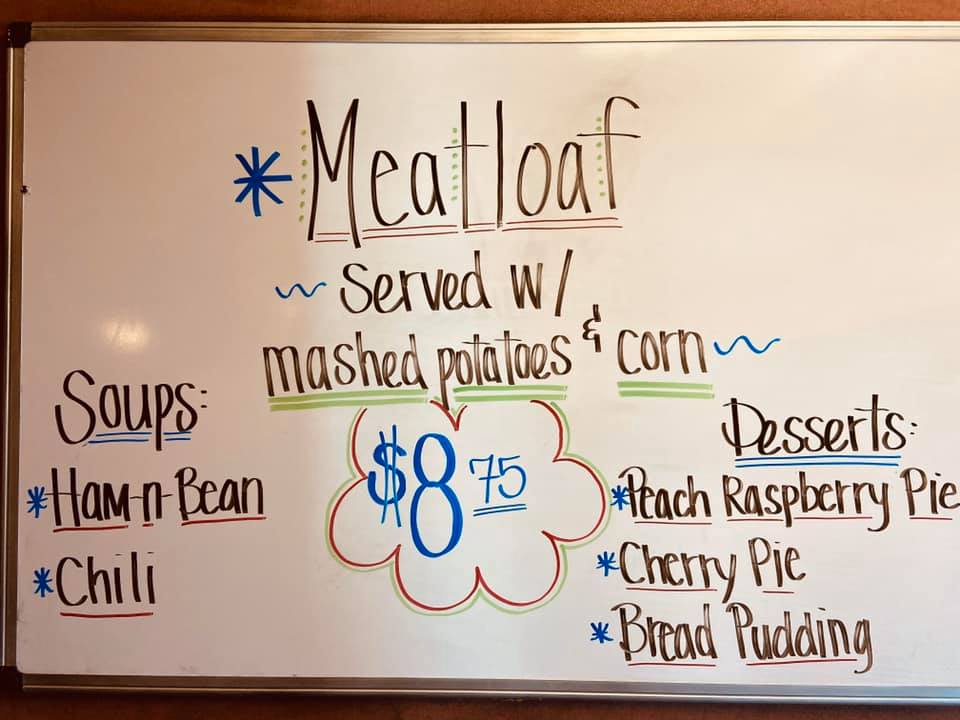 * Meatloaf
~ Served w/
mashed potatoes & corn ~
$8 75
Soups:
* Ham-n-Bean
* Chili
Desserts:
* Peach Raspberry Pie
* Cherry Pie
* Bread Pudding